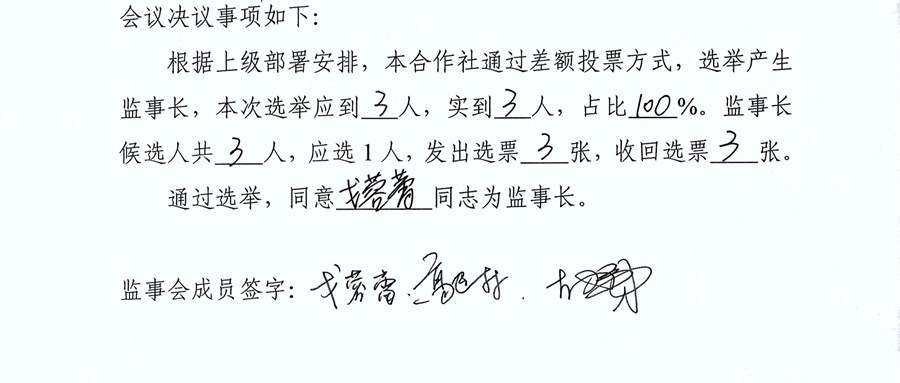 会议决议事项如下：
根据上级部署安排，本合作社通过差额投票方式，选举产生
监事长，本次选举应到3人，实到3人，占比100%。监事长
候选人共3人，应选1人，发出选票3张，收回选票3张。
通过选举，同意戈蓉蕾同志为监事长。
监事会成员签字：戈蓉蕾